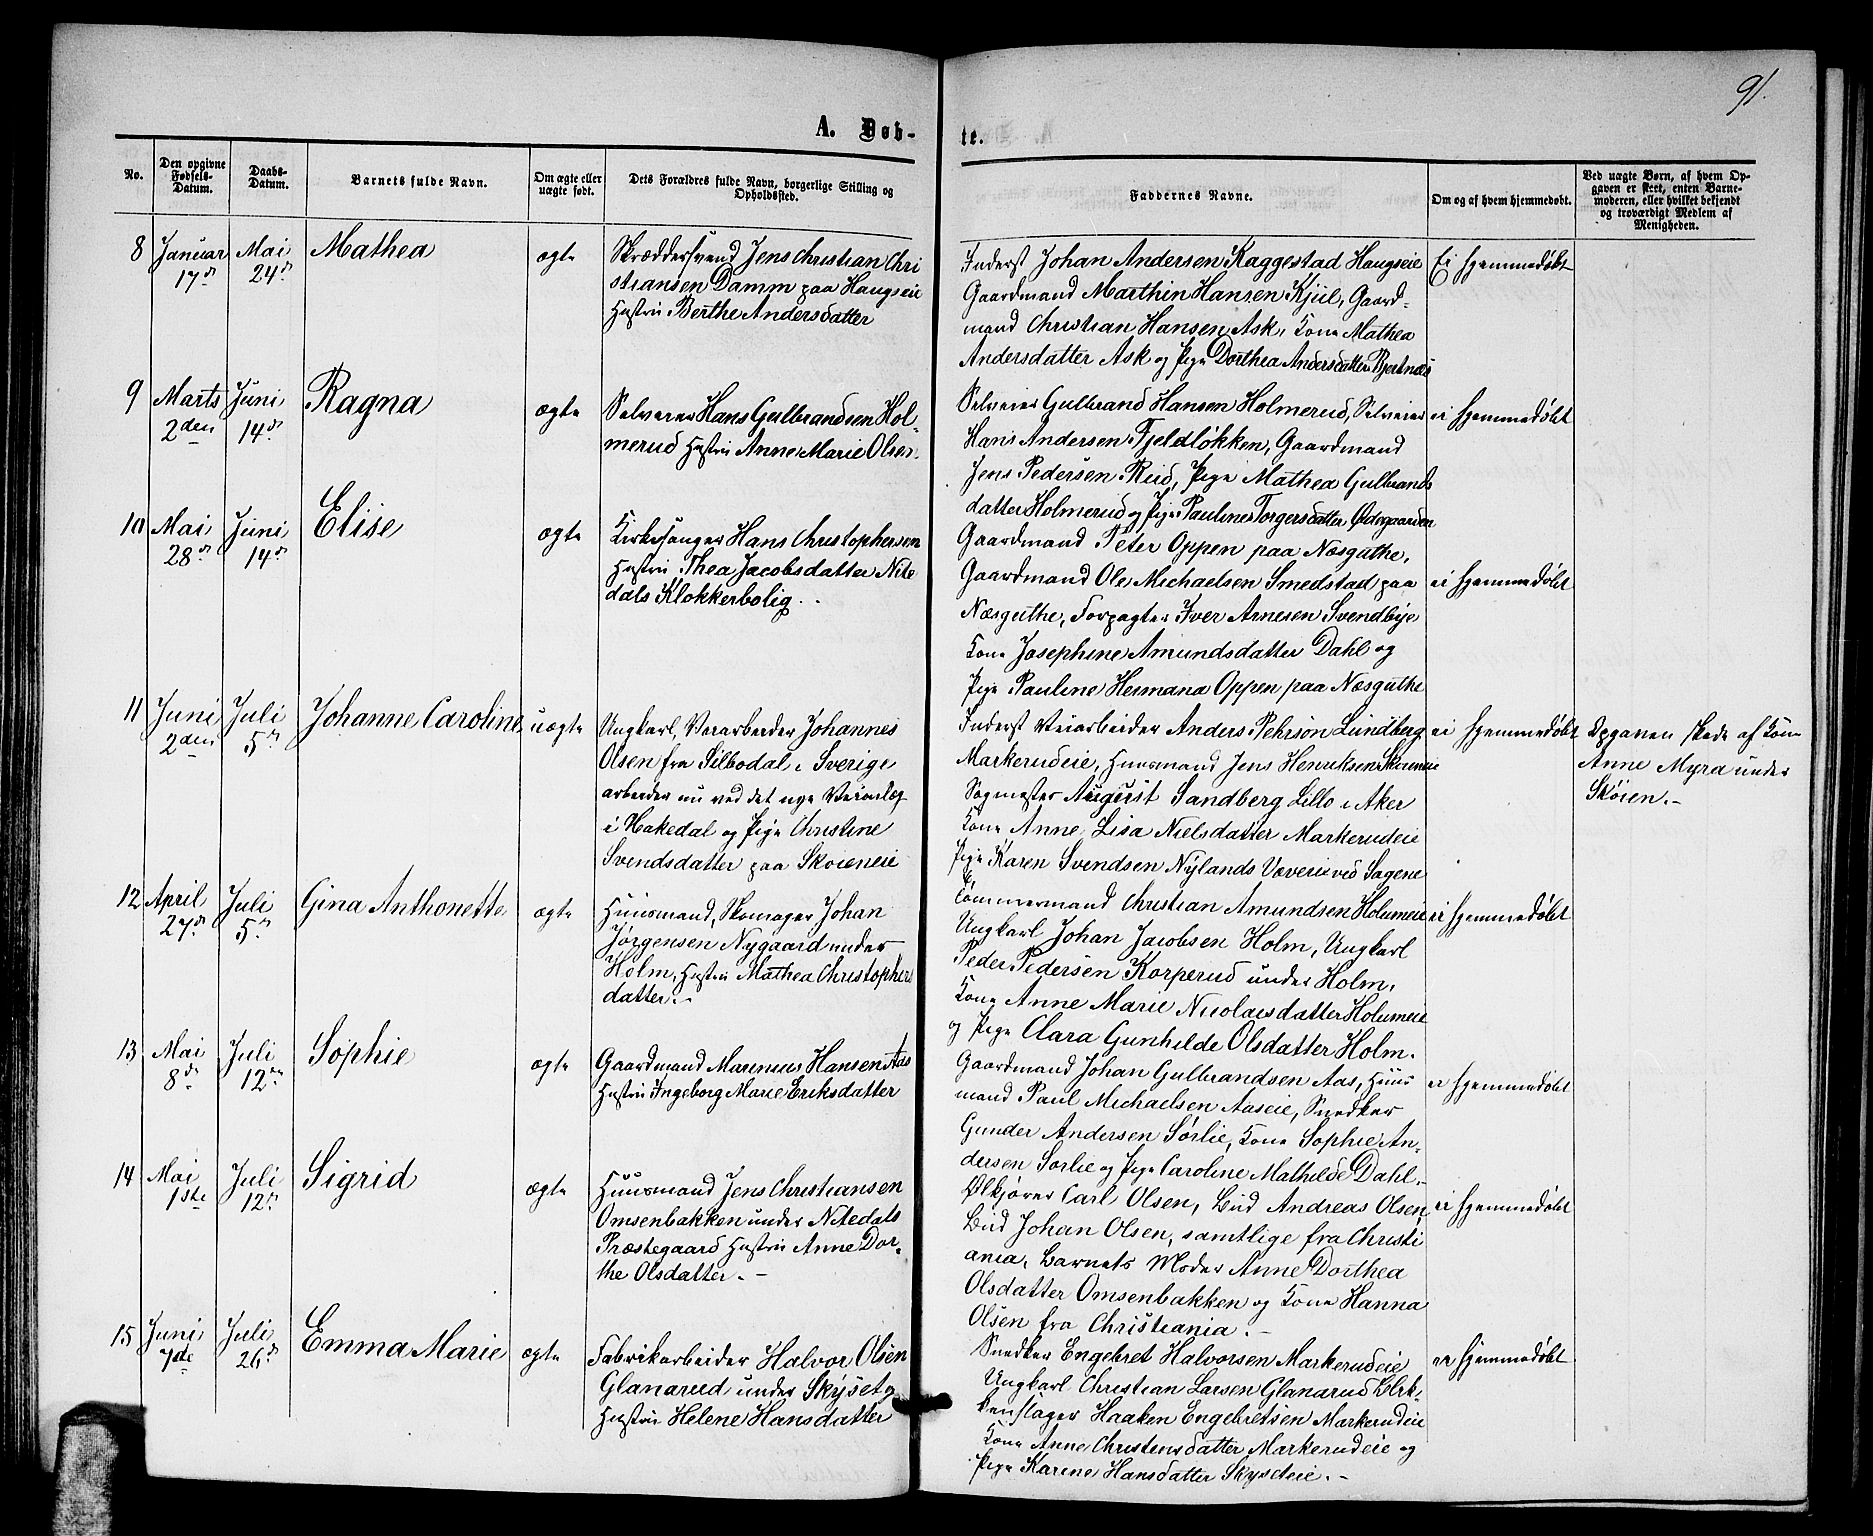 91.
A. Døb-
te.
No.
Den opgivne
Fødsels-
Datum.
Daabs-
Datum.
Barnets fulde Navn.
Om ægte eller
uægte født.
Dets Forældres fulde Navn, borgerlige Stilling og
Opholdssted.
Faddernes Navne.
Om og af hvem hjemmedøbt.
Ved uægte Børn, af hvem Op-
gaven er skeet, enten Barne-
moderen, eller hvilket bekjendt
og troværdigt Medlem af
Menigheden.
8
Januar
17d
Mai
24d
Mathea
ægte
Skræddersvend Jens Christian Chri
stiansen Damm paa Haugseie
Hustru Berthe Andersdatter
Inderst Johan Andersen Kaggestad Haugseie
Gaardmand Marthin Hansen Kjul, Gaard-
mand Christian Hansen Ask, Kone Mathea
Andersdatter Ask og Pige Dorthea Andersdatter Bjertnæs
Ei hjemmedøbt
9
Marts
2den
Juni
14d
Ragna
ægte
Selveier Hans Gulbrandsen Hol-
merud Hustru Anne Marie Olsen.
Selveier Gulbrand Hansen Holmerud, Selveier
Hans Andersen Fjeldløkken, Gaardmand
Jens Pedersen Rud, Pige Mathea Gulbrands
datter Holmerud og Pige Pauline Torgersdatter Østegaarden
ei hjemmedøbt
10
Mai
28d
Juni
14d
Elise
ægte
Kirkesanger Hans Christophersen
Hustru Thea Jacobsdatter Nite
dals Klokkerbolig..
Gaardmand Peter Oppen paa Næsguthe,
Gaardmand Ole Michaelsen Smedstad paa
Næsguthe, Forpagter Iver Arnesen Svendbye
Kone Josephine Amundsdatter Dahl og
Pige Pauline Hermana Oppen paa Næsguthe
ei hjemmedøbt
11
Juni
2den
Juli
5d
Johanne Caroline
uægte
Ungkarl, Veiarbeider Johannes
Olsen fra Silbodal i Sverige
arbeider nu ved det nye Veianlæg
i Hakedal og Pige Christine
Svendsdatter paa Skøieneie
Inderst Veiarbeider Anders Pehrson Lundberg
Markerudeie, Huusmand Jens Henriksen Skøieneie
Sagmester August Sandberg Lillo i Aker
Kone Anne Lisa Nielsdatter Markerudeie
Pige Karen Svendsen Nylands Væverie ved Sagene
ei hjemmedøbt
Opgaven skede af Kone
Anne Myra under
Skøien.-
12
April
27d
Juli
5d
Gina Anthonette
ægte
Huusmand, Skomager Johan
Jørgensen Nygaard under
Holm, Hustru Mathea Christophers
datter.-
Tømmermand Christian Amundsen Holumeie
Ungkarl Johan Jacobsen Holm, Ungkarl
Peder Pedersen Korperud under Holm,
Kone Anne Marie Nicolaisdatter Holumeie
og Pige Clara Gunhilde Olsdatter Holm.
ei hjemmedøbt
13
Mai
8d
Juli
12te
Sophie
ægte
Gaardmand Marenius Hansen Aas
Hustru Ingeborg Marie Eriksdatter
Gaardmand Johan Gulbrandsen Aas, Huus
mand Paul Michaelsen Aaseie, Snedker
Gunder Andersen Sørlie, Kone Sophie An-
dersen Sørlie og Pige Caroline Mathilde Dahl.-
ei hjemmedøbt
14
Mai
1ste
Juli
12d
Sigrid
ægte
Huusmand Jens Christiansen
Omsenbakken under Nitedals
Præstegaard Hustru Anne Dor-
the Olsdatter. -
Ølkjører Carl Olsen, Bud Andreas Olsen,
Bud Johan Olsen, samtlige fra Christi
ania, Barnets Moder Anne Dorthea
Olsdatter Omsenbakken og Kone Hanna
Olsen fra Christiania. -
ei hjemmedøbt
15
Juni
7de
Juli
26d
Emma Marie
ægte
Fabrikarbeider Halvor Olsen
Glanarud under Skyset og
Hustru Helene Hansdatter
Snedker Engebret Halvorsen Markerudeie
Ungkarl Christian Larsen Glanarud Blik-
kenslager Haaken Engebretsen Markerudeie
Kone Anne Christensdatter Markerudeie og
Pige Karine Hansdatter Skyseteie. -
ei hjemmedøbt